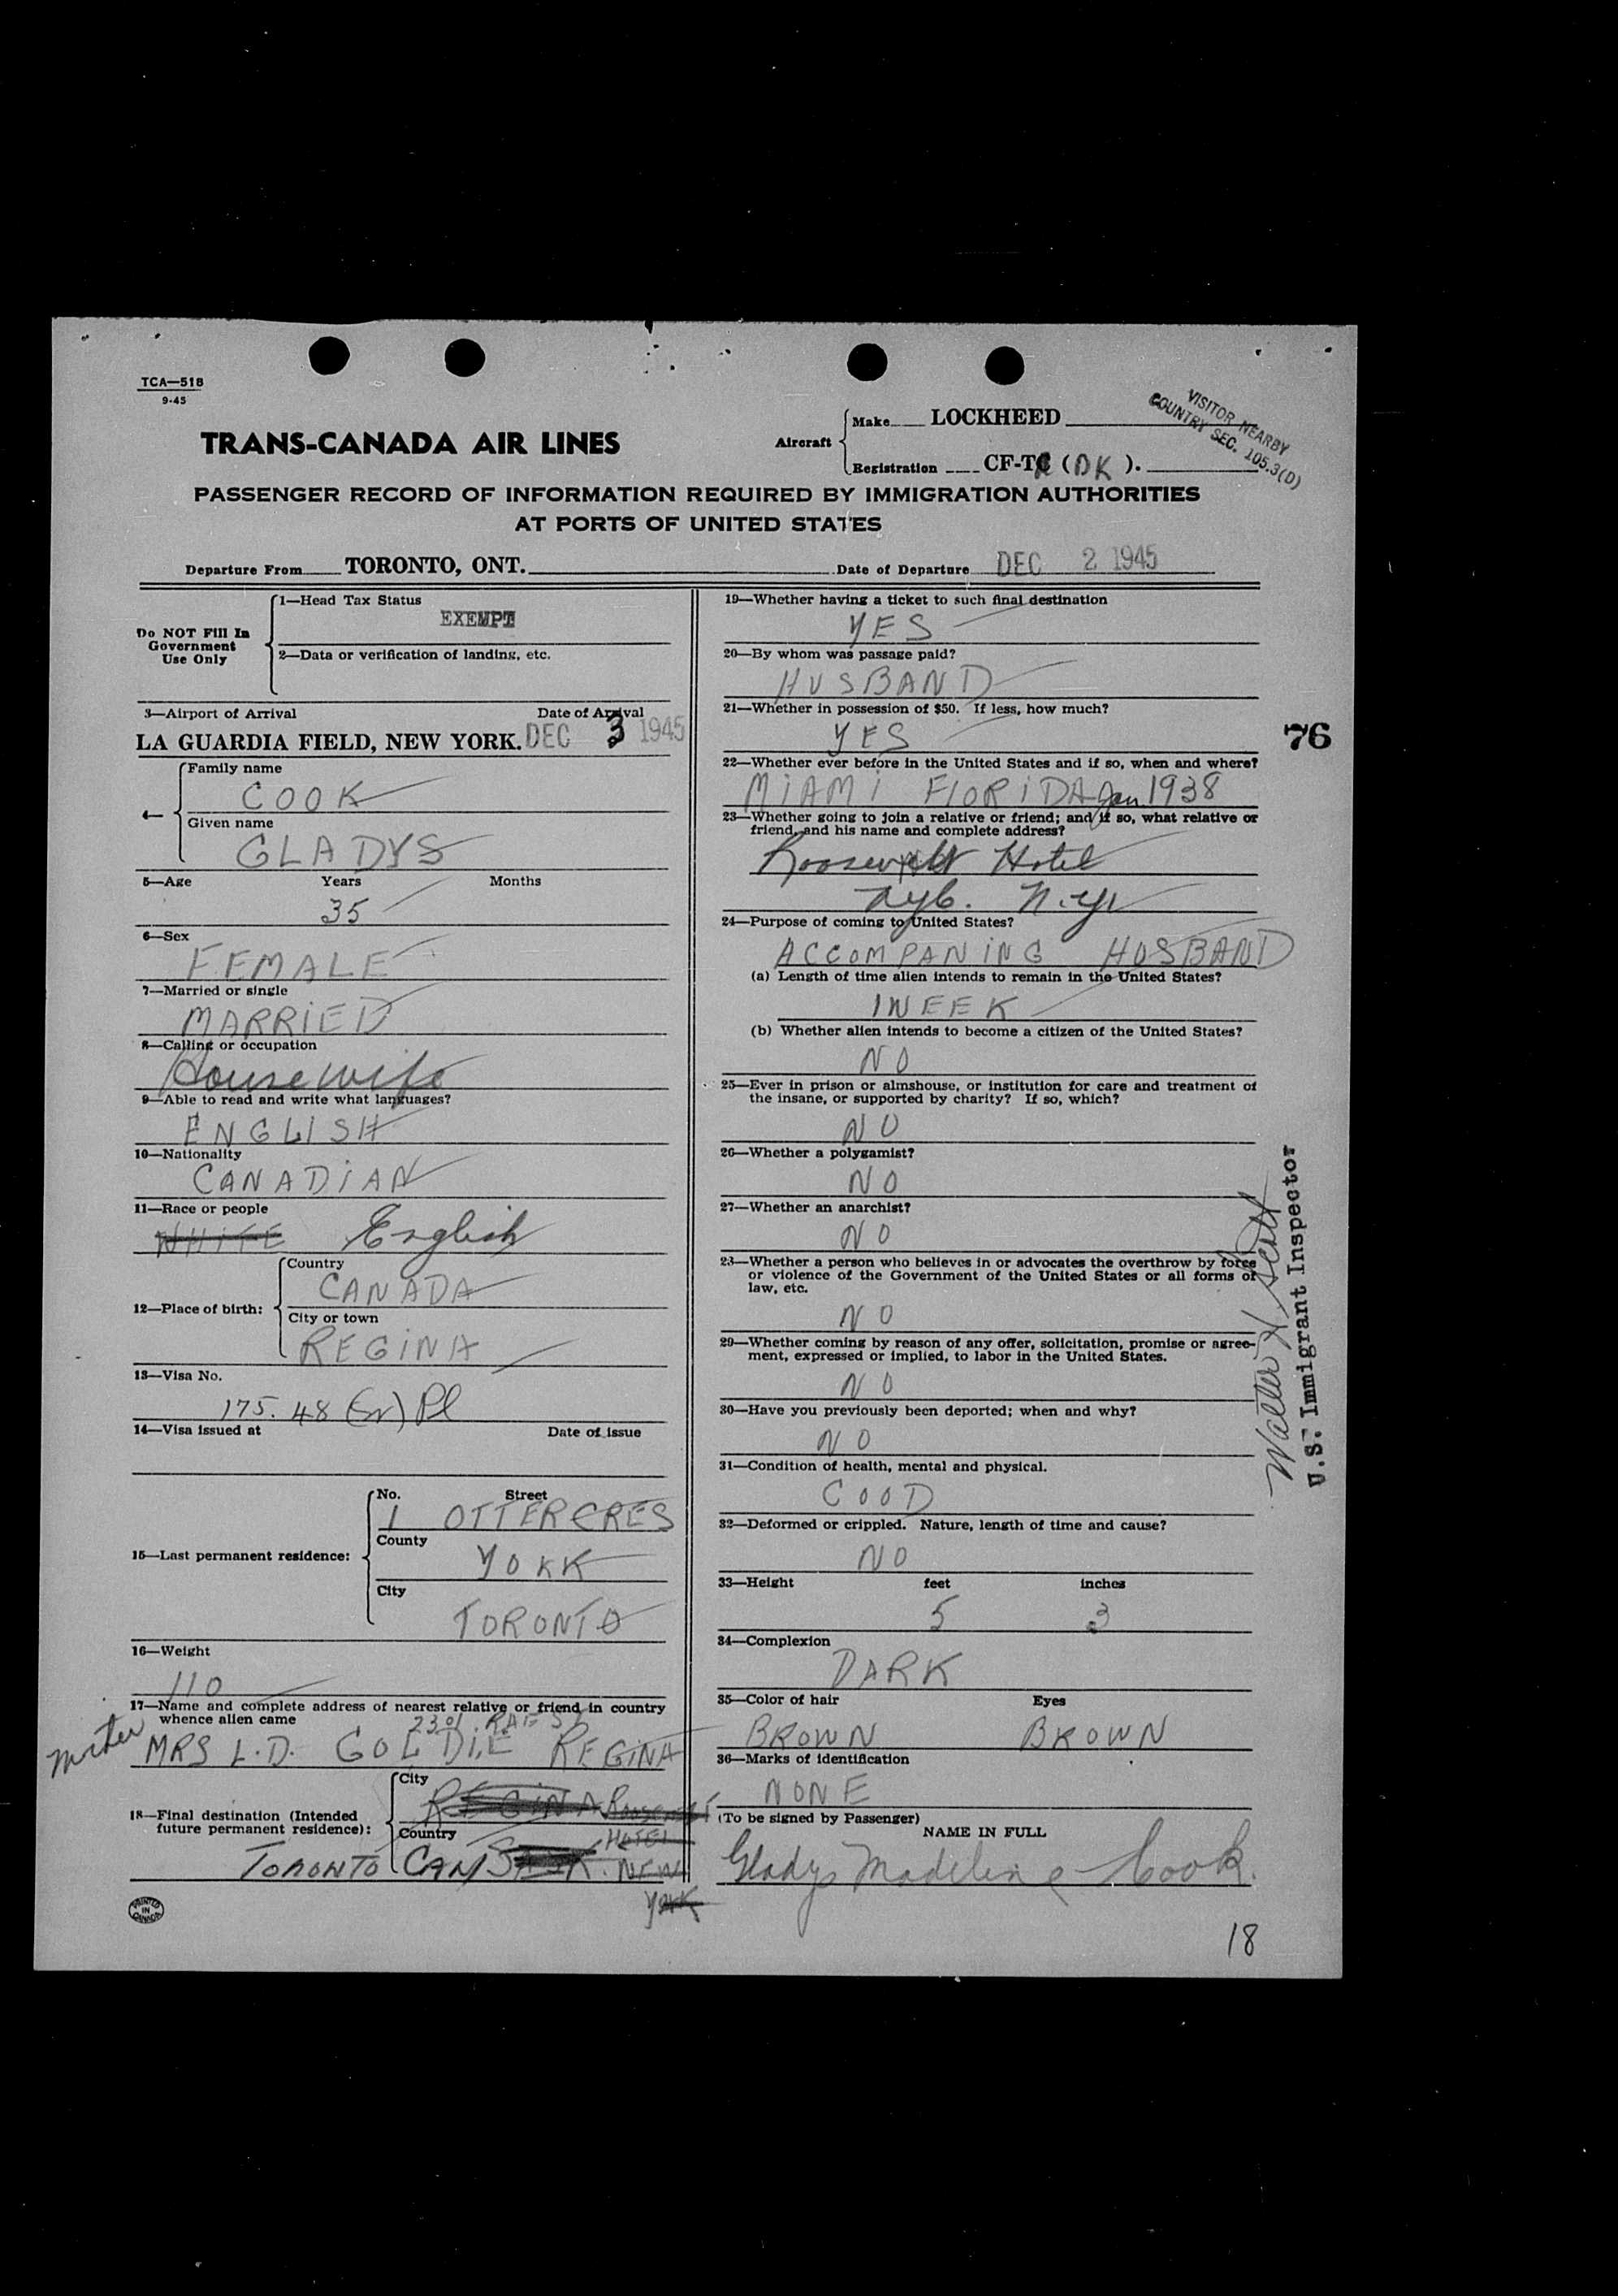 TCA—518
9-45
TRANS-CANADA AIR LINES
Aircraft
Make LOCKHEED
Registration CF-T (DK).
VISITOR NEARBY
COUNTRY SEC. 105.3(D)
PASSENGER RECORD OF INFORMATION REQUIRED BY IMMIGRATION AUTHORITIES
AT PORTS OF UNITED STATES
Departure From TORONTO, ONT. Date of Departure DEC 2 1945
Do NOT Fill In
Government
Use Only
1—Head Tax Status
EXEMPT
2—Data or verification of landing, etc.
3—Airport of Arrival Date of Arrival
LA GUARDIA FIELD, NEW YORK. DEC 3 1945
4—
Family name
COOK
Given name
GLADYS
5—Age Years Months
35
6—Sex
FEMALE
7—Married or single
MARRIED
8—Calling or occupation
Housewife
9—Able to read and write what languages?
ENGLISH
10—Nationality
CANADIAN
11—Race or people
WHITE English
12—Place of birth:
Country
CANADA
City or town
REGINA
13—Visa No.
175.48 Pl
14—Visa issued at Date of issue
15—Last permanent residence:
No. Street
1 OTTER CRES
County
YORK
City
TORONTO
16—Weight
110
17—Name and complete address of nearest relative or friend in country
whence alien came
2301 RAE ST
Mother MRS L.D. GOLDIE REGINA
18—Final destination (Intended
future permanent residence):
City
REGINA ROOSEVELT
Country HOTEL
TORONTO CAN NEW
YORK
PRINTED
IN
CANADA
19—Whether having a ticket to such final destination
YES
20—By whom was passage paid?
HUSBAND
21—Whether in possession of $50. If less, how much?
YES
22—Whether ever before in the United States and if so, when and where?
MIAMI FLORIDA Jan 1938
23—Whether going to join a relative or friend; and if so, what relative or
friend, and his name and complete address?
Roosevelt Hotel
Nyc. N.Y.
24—Purpose of coming to United States?
ACCOMPANING HUSBAND
(a) Length of time alien intends to remain in the United States?
1WEEK
(b) Whether alien intends to become a citizen of the United States?
NO
25—Ever in prison or almshouse, or institution for care and treatment of
the insane, or supported by charity? If so, which?
NO
26—Whether a polygamist?
NO
27—Whether an anarchist?
NO
28—Whether a person who believes in or advocates the overthrow by force
or violence of the Government of the United States or all forms of
law, etc.
NO
29—Whether coming by reason of any offer, solicitation, promise or agree-
ment, expressed or implied, to labor in the United States.
NO
30—Have you previously been deported; when and why?
NO
31—Condition of health, mental and physical.
GOOD
32—Deformed or crippled. Nature, length of time and cause?
NO
33—Height feet inches
5 3
34—Complexion
DARK
35—Color of hair Eyes
BROWN BROWN
36—Marks of identification
NONE
(To be signed by Passenger)
NAME IN FULL
Gladys Madeline Cook.
76
Walter H Scott
U.S. Immigrant Inspector
18